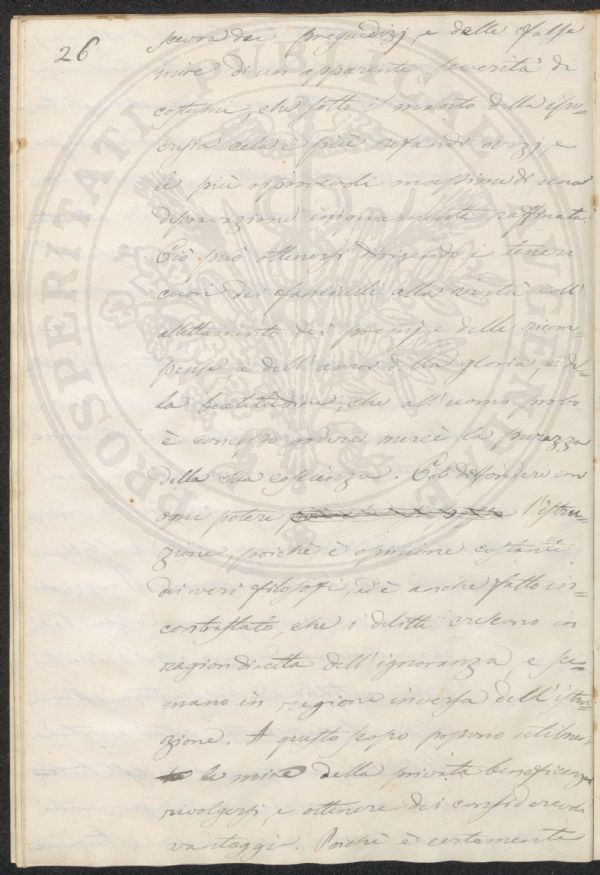 26
scevra dai pregiudizj, e dalle false
mire di un apparente severità di
costumi, che sotto il manto della ipo=
crisia cela i più nefandi vizzj, e
le più riprovevoli massime di una
depravazione iniquamente raffinata.
Ciò può ottenersi dirigendo i teneri
cuori dei fanciulli alla virtù coll'
allettamento dei premj e delle ricom=
pense e dell'amor della gloria, e di=
la beatitudine, che all'uomo probo
è concesso godere mercè la purezza
della sua coscienza. Col diffondere con
ogni potere l'istru=
zione, poichè è opinione costante
dei veri filosofi, ed è anche fatto in=
contrastato, che i delitti crescono in
region diretta dell'ignoranza, e sce=
mano in regione inversa dell'istru=
zione. A questo scopo possono utilmen
te le mire della privata beneficenza
rivolgersi, e ottenere dei considerevoli
vantaggi. Poichè è certamente
PROSPERITATI PUBLICAE AUGENDAE